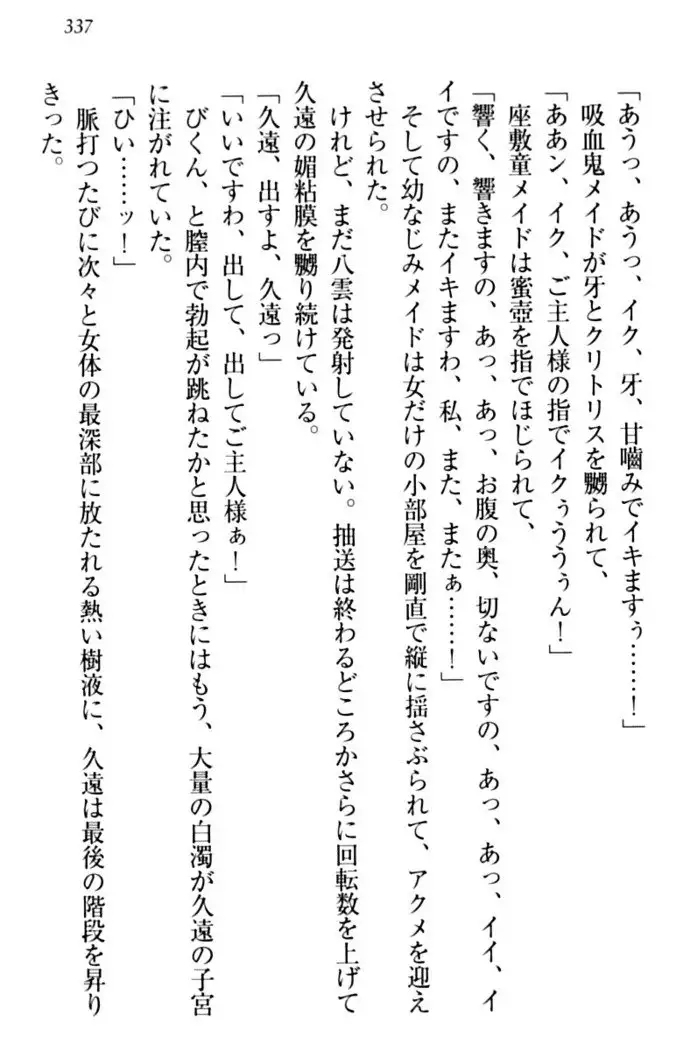 337
「あうっ、あうっ、イク、牙、甘噛みでイキますぅ……！」
吸血鬼メイドが牙とクリトリスを嬲られて、
「ああン、イク、ご主人様の指でイクぅううぅん！」
座敷童メイドは蜜壺を指でほじられて、
「響く、響きますの、あっ、あっ、お腹の奥、切ないですの、あっ、あっ、イイ、イ
イですの、またイキますわ、私、また、またぁ……！」
そして幼なじみメイドは女だけの小部屋を剛直で縦に揺さぶられて、アクメを迎え
させられた。
けれど、まだ八雲は発射していない。抽送は終わるどころかさらに回転数を上げて
久遠の媚粘膜を嬲り続けている。
「久遠、出すよ、久遠っ」
「いいですわ、出して、出してご主人様ぁ！」
びくん、と膣内で勃起が跳ねたかと思ったときにはもう、大量の白濁が久遠の子宮
に注がれていた。
「ひい……ッ！」
脈打つたびに次々と女体の最深部に放たれる熱い樹液に、久遠は最後の階段を昇り
きった。